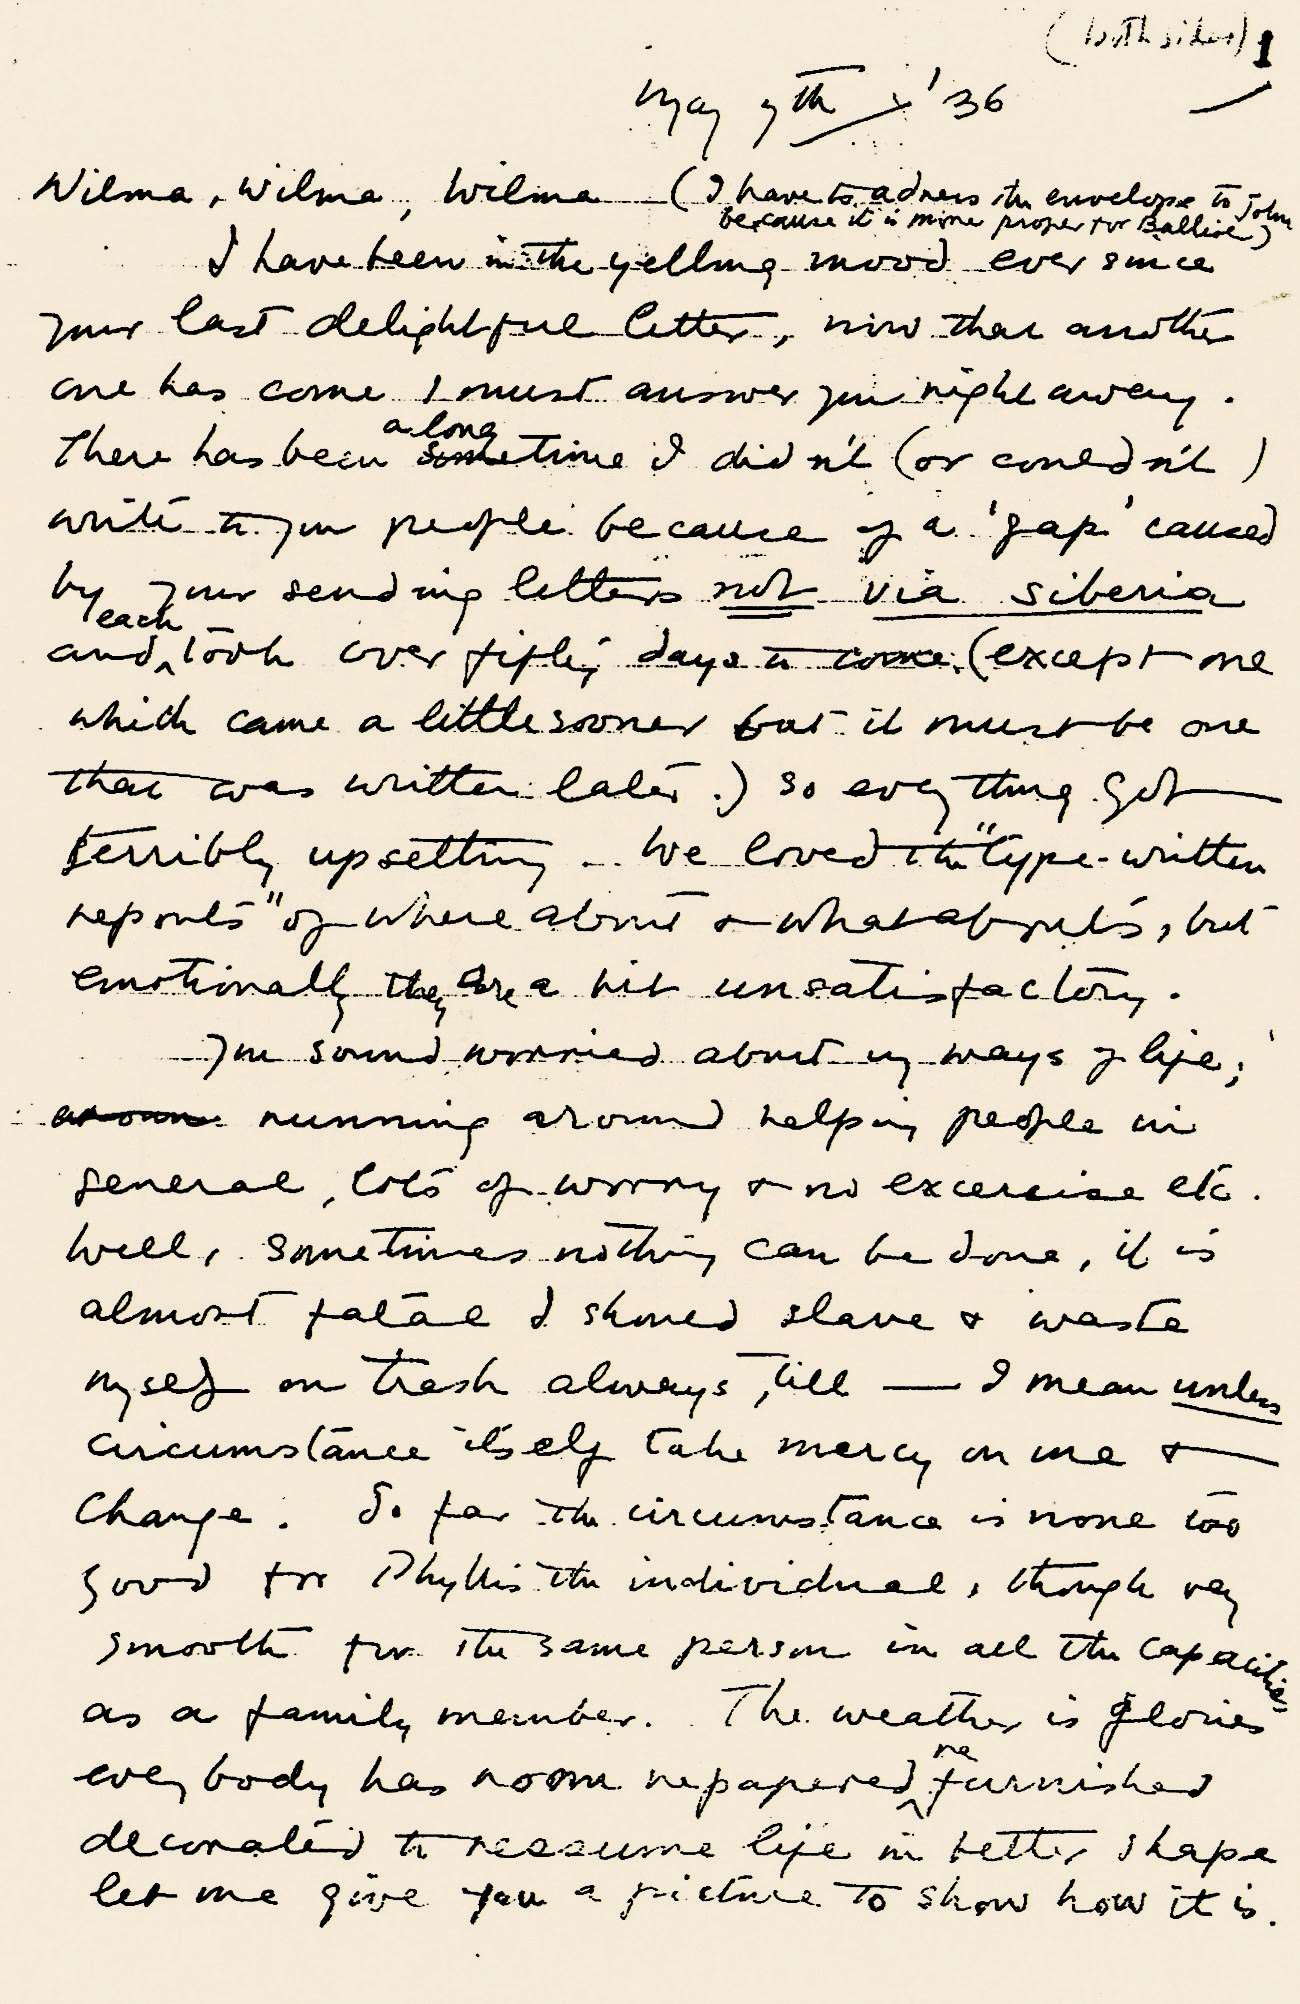 (both sides) 1
May 7th '36
Wilma, Wilma, Wilma (I have to adress the envelope to John
because it is more proper for Balliol)
I have been in the yelling mood ever since
your last delightful letter, now that another
one has come I must answer you right away.
a long
There has been some time I didn't (or couldn't)
write to you people because of a 'gap' caused
by your sending letters not via siberia
each
and took over fifty days to come. (except one
which came a little sooner but it must be one
that was written later.) So everything got
terribly upsetting. We loved the "type-written
reports" of where about & what abouts, but
emotionally they are a bit unsatisfactory.
You sound worried about my ways of life;
running around helping people in
general, lots of worry & no excercise etc.
Well, sometimes nothing can be done, it is
almost fatal I should slave & waste
myself on trash always, till — I mean unless
circumstance itself take mercy on me &
change. So far the circumstance is none too
good for Phyllis the individual, though very
smooth for the same person in all the capacities
as a family member. The weather is glories
re
everybody has room repapered furnished
decorated to ressume life in better shape
let me give you a picture to show how it is.